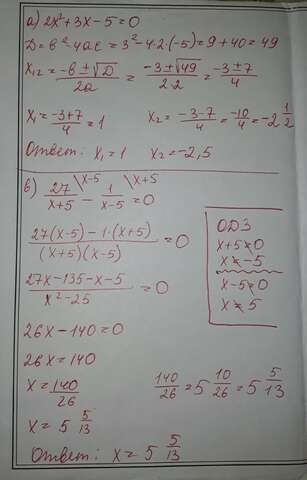 а) 2x²+3x-5=0
D=в²-4ас=3²-4·2·(-5)=9+40=49
x₁,₂=(-в±√D)/2a=(-3±√49)/2·2=(-3±7)/4
x₁=(-3+7)/4=1 x₂=(-3-7)/4=-10/4=-2 1/2
Ответ: x₁=1 x₂=-2,5
в) 27/(x+5) \x-5 - 1/(x-5) \x+5 =0
(27(x-5)-1·(x+5))/((x+5)(x-5))=0
(27x-135-x-5)/(x²-25)=0
26x-140=0
26x=140
x=140/26
x=5 5/13
ОДЗ
x+5≠0
x≠-5
x-5≠0
x≠5
140/26=5 10/26=5 5/13
Ответ: x=5 5/13